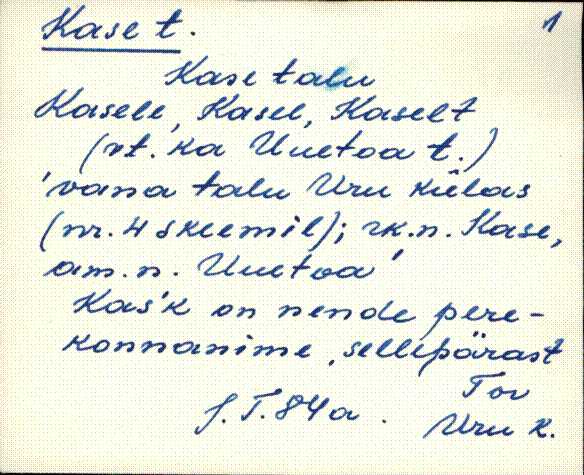 Kase t. 1
Kase talu
Kasele, Kasel, Kaselt
(vt. ka Uuetoa t.)
'vana talu Uru külas
(nr. 4 skeemil); rk.n. Kase,
am.n. Uuetoa'
Kas'k on nende pere-
konnanime, sellepärast
J.T. 84a. Tor
Uru k.